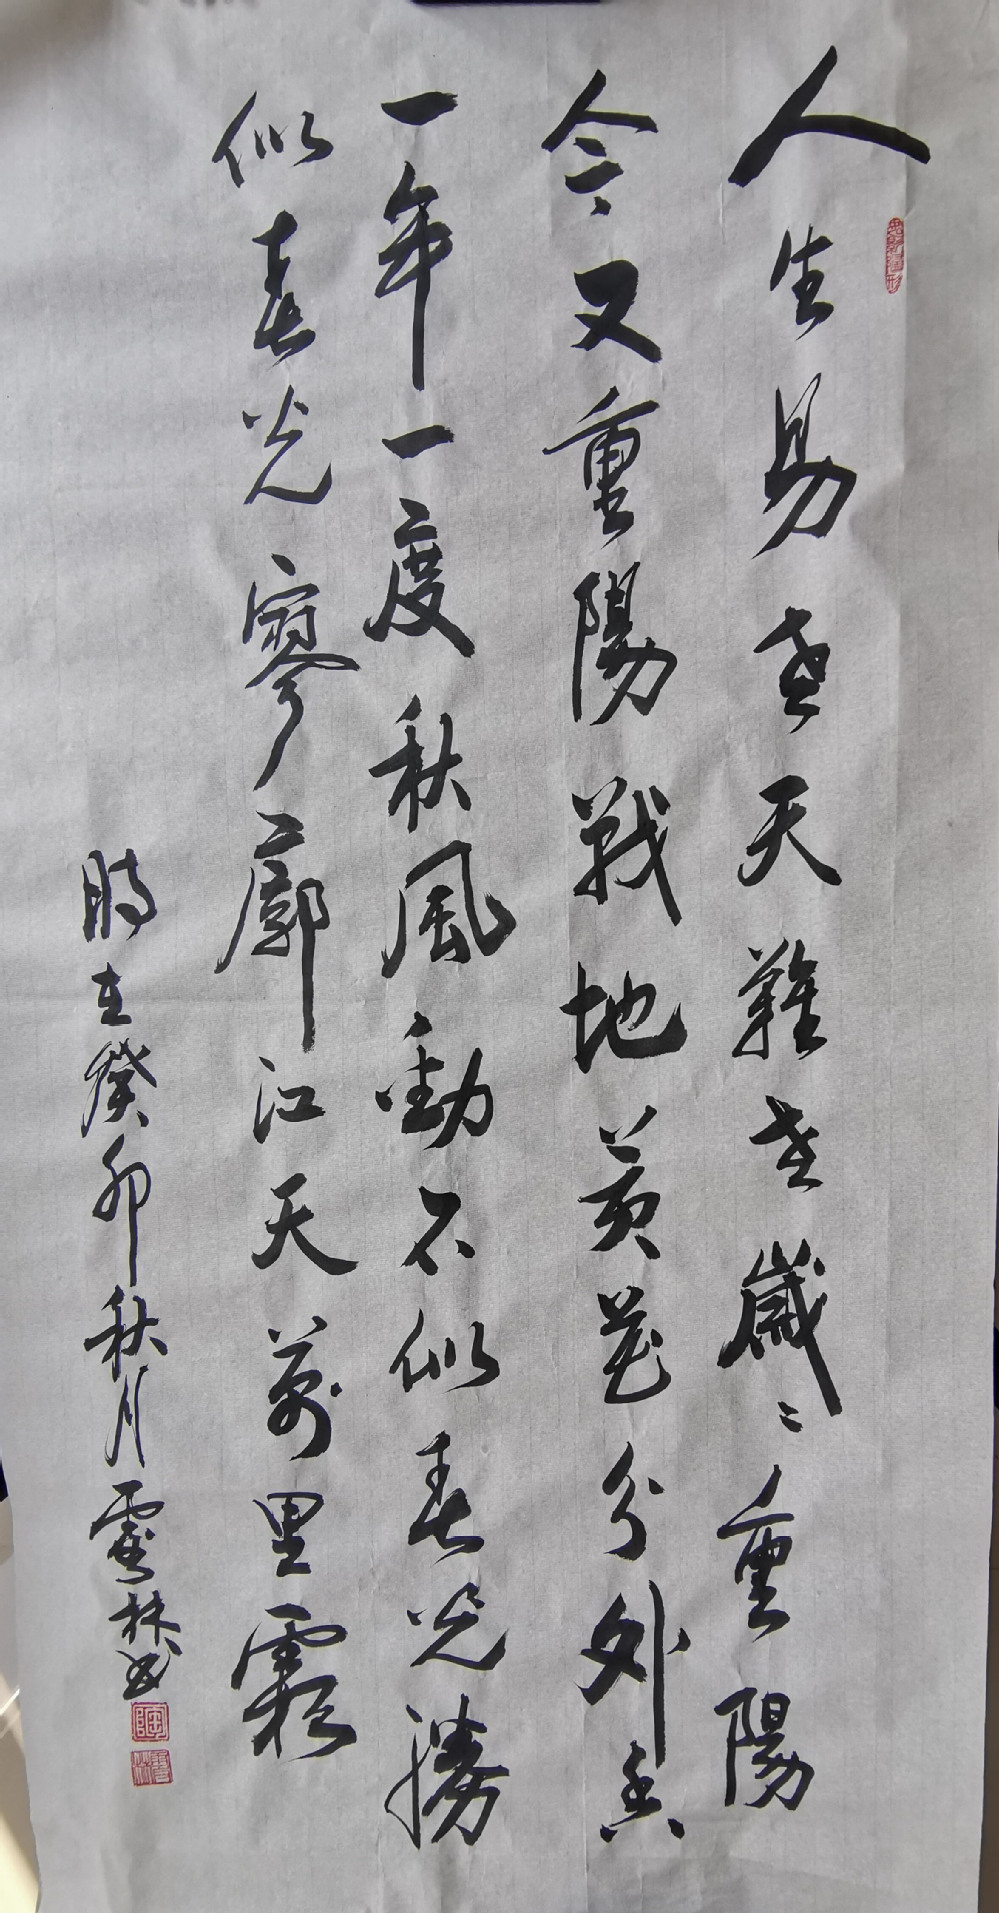 人生易老天難老歲〻重陽
今又重陽戰地黃花分外香
一年一度秋風勁不似春光勝
似春光寥廓江天萬里霜
時在癸卯秋月雲林书